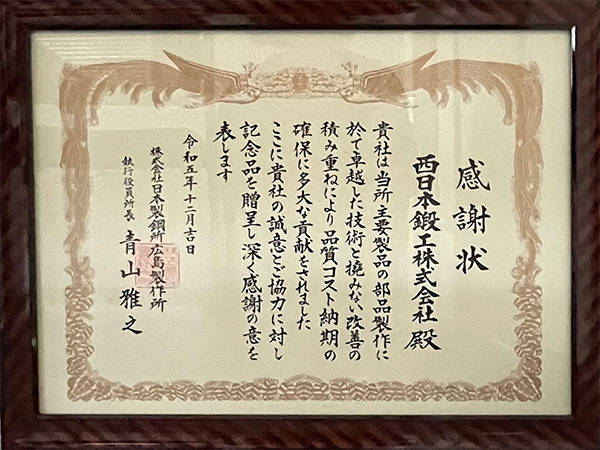 感謝状
西日本鍛工株式会社 殿
貴社は当所主要製品の部品製作に
於て卓越した技術と撓みない改善の
積み重ねにより品質コスト納期の
確保に多大な貢献をされました
ここに貴社の誠意とご協力に対し
記念品を贈呈し深く感謝の意を
表します
令和五年十二月吉日
株式会社日本製鋼所広島製作所
執行役員所長 青山雅之